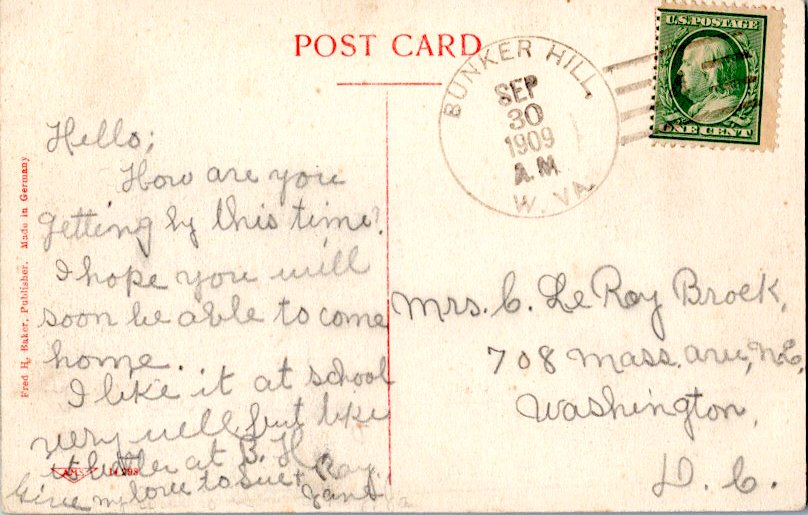 POST CARD
BUNKER HILL,
SEP
30
1909
A.M.
W. VA.
U.S. POSTAGE
ONE CENT
Fred H. Baker, Publisher. Made in Germany
Hello;
How are you
getting by this time?
I hope you will
soon be able to come
home.
I like it at school
very well but like
it better at B. H.
Ray.
Give my love to
Mrs. C. Le Roy Brock,
708 Mass. ave, N.E,
Washington,
D. C.